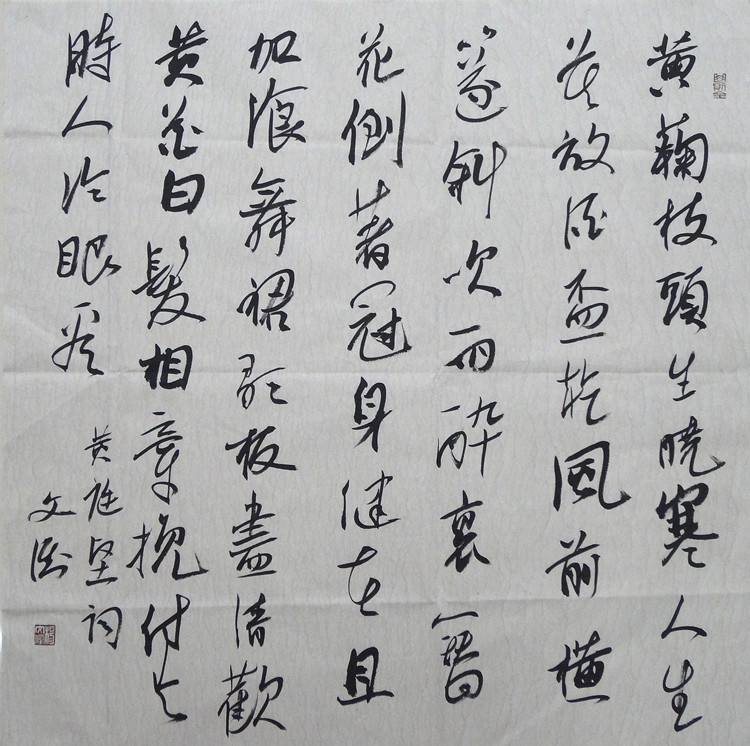 黄鞠枝頭生曉寒人生
莫放酒盃乾風前橫
篴斜吹雨醉裏簪
花倒著冠身健在且
加湌舞裙歌板盡清歡
黄花白髮相牽挽付与
時人冷眼看
黄庭堅詞
文